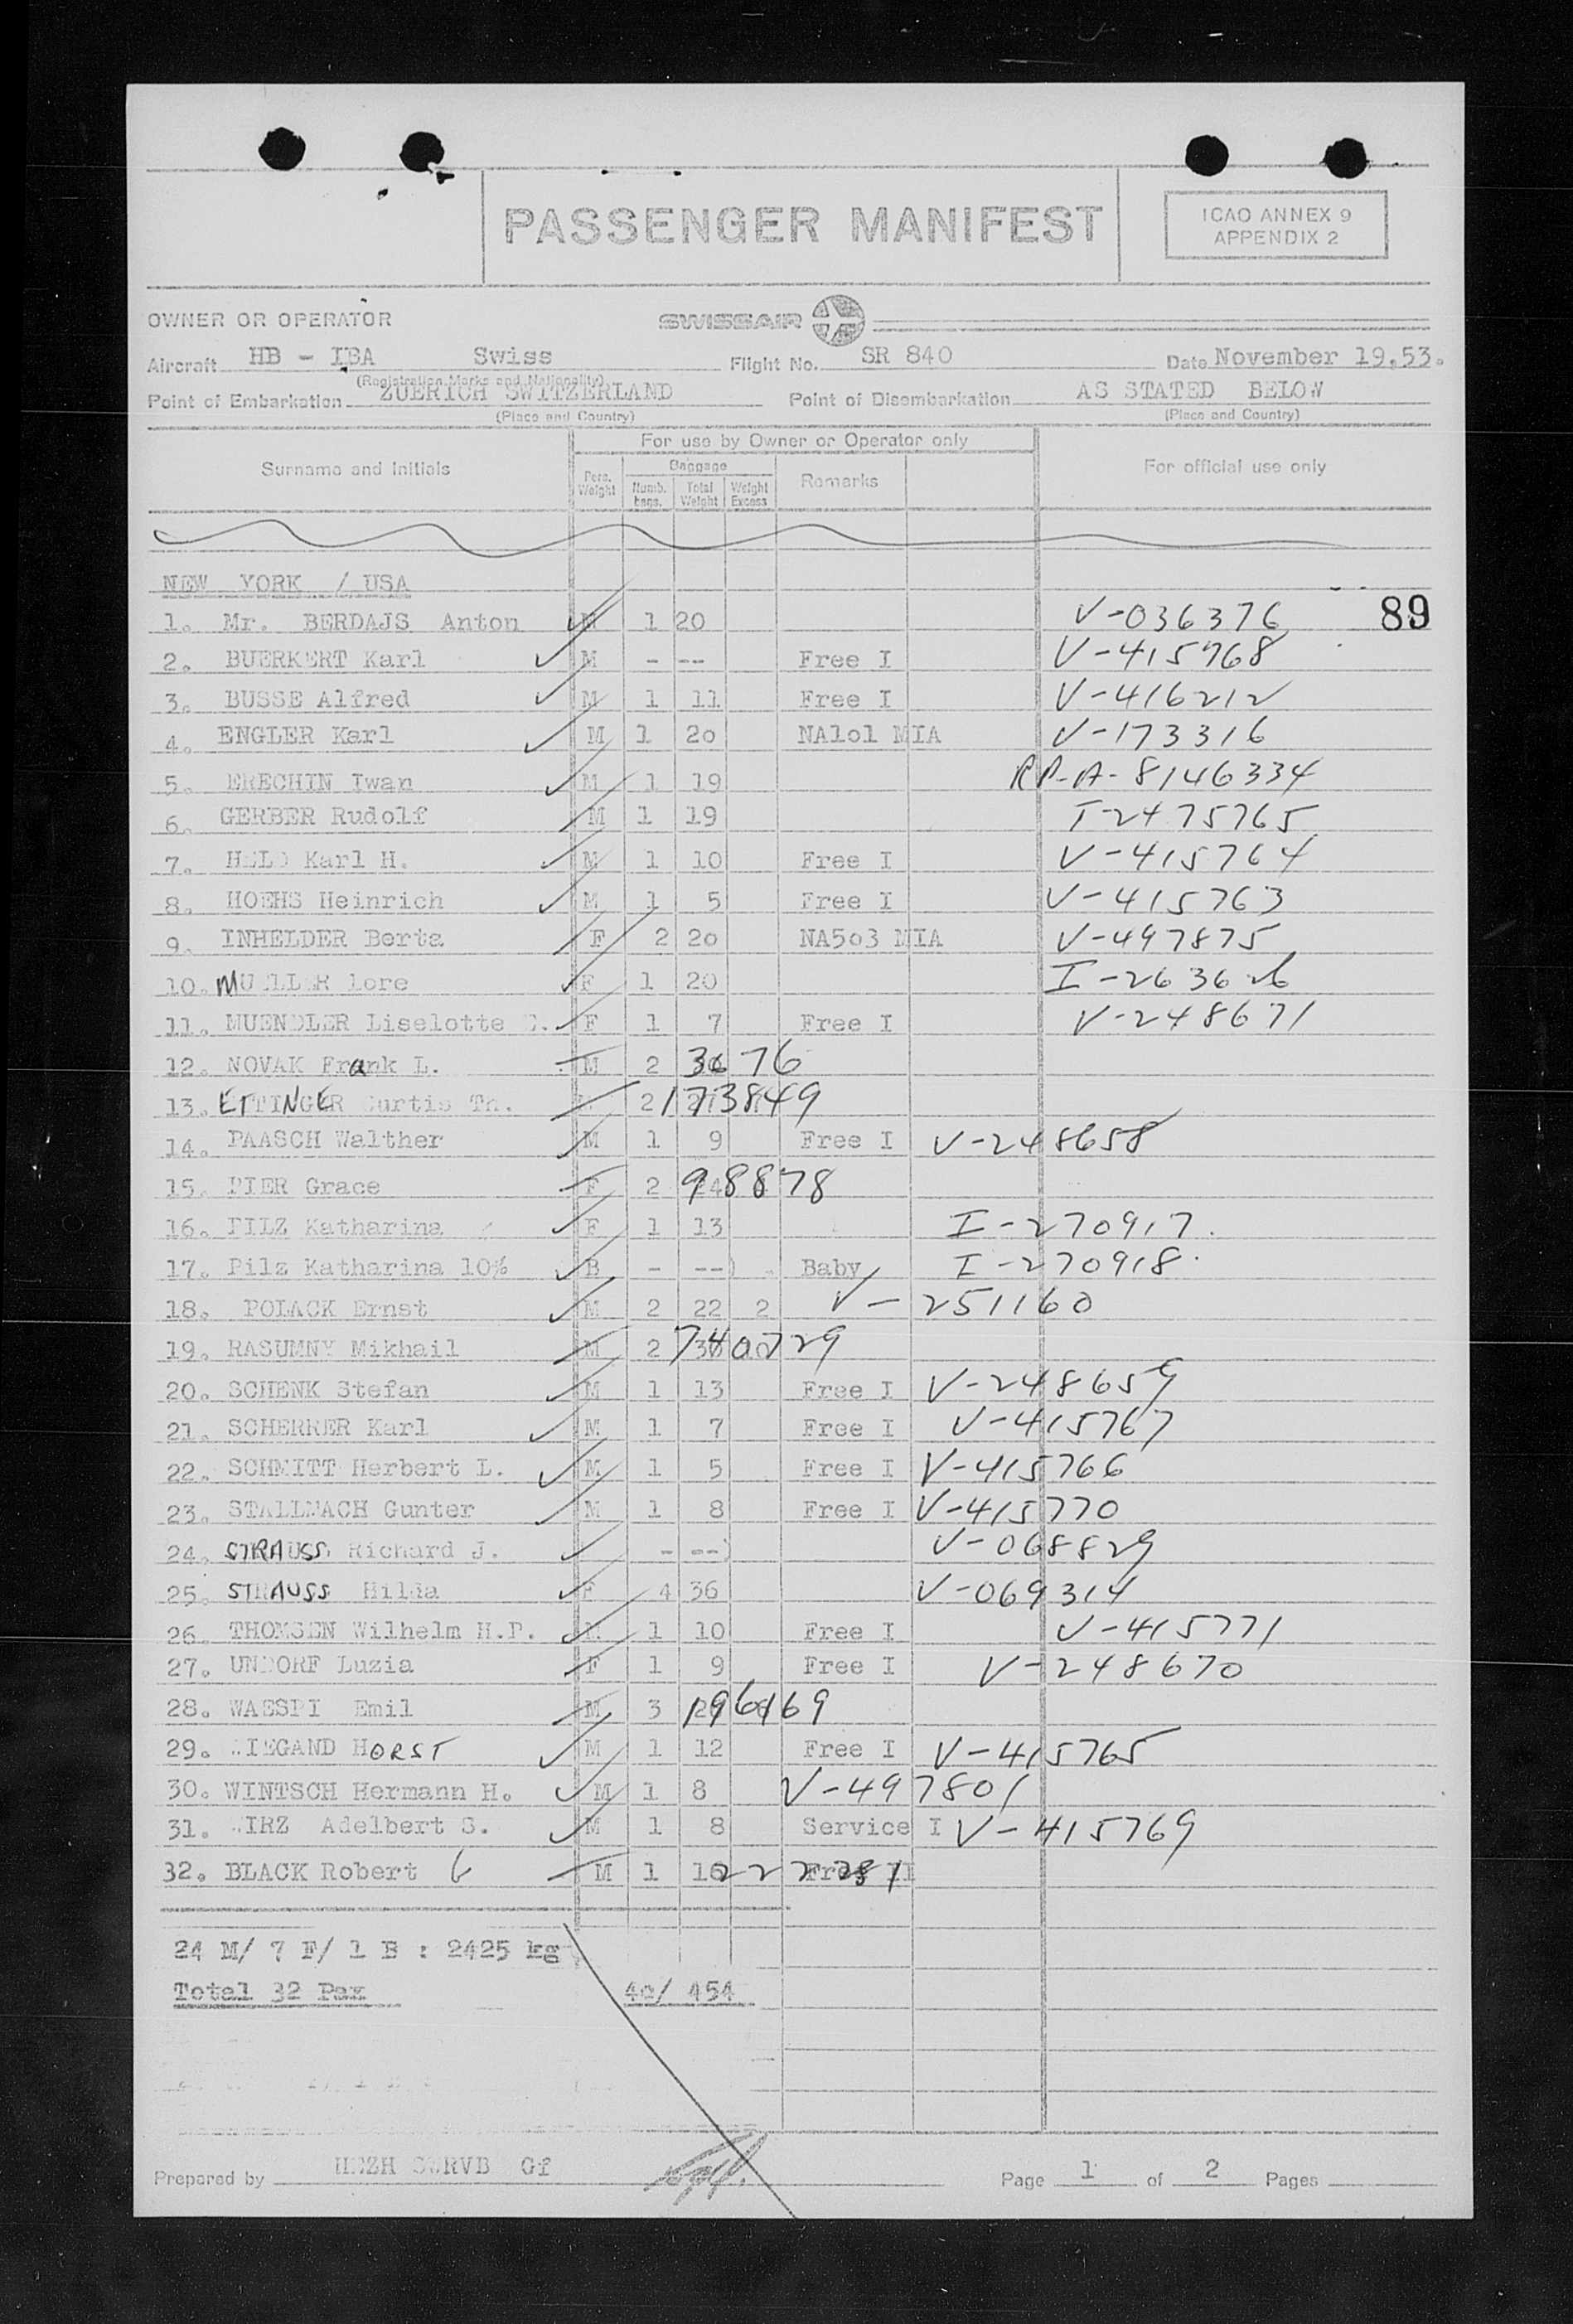 PASSENGER MANIFEST
ICAO ANNEX 9
APPENDIX 2
OWNER OR OPERATOR SWISSAIR
Aircraft HB - IBA Swiss Flight No. SR 840 Date November 19,53.
(Registration Marks and Nationality)
Point of Embarkation ZUERICH SWITZERLAND Point of Disembarkation AS STATED BELOW
(Place and Country) (Place and Country)
For use by Owner or Operator only
Surname and Initials Pers. Weight Baggage Numb. bags. Total Weight Weight Excess Remarks For official use only
NEW YORK / USA
1. Mr. BERDAJS Anton M 1 20 V-036376 89
2. BUERKERT Karl M - -- Free I V-415768
3. BUSSE Alfred M 1 11 Free I V-416212
4. ENGLER Karl M 1 20 NA1o1 MIA V-173316
5. ERECHIN Iwan M 1 19 RP-A-8146334
6. GERBER Rudolf M 1 19 T-2475765
7. HELD Karl H. M 1 10 Free I V-415764
8. HOEHS Heinrich M 1 5 Free I V-415763
9. INHELDER Berta F 2 20 NA5o3 MIA V-497875
10. MUELLER Lore F 1 20 I-263626
11. MUENDLER Liselotte F 1 7 Free I V-248671
12. NOVAK Frank L. M 2 76
13. ETTINGER Curtis Th. 2 173849
14. PAASCH Walther M 1 9 Free I V-248658
15. PIER Grace F 2 98878
16. PILZ Katharina F 1 13 I-270917.
17. Pilz Katharina 10% B - --) Baby I-270918.
18. POLACK Ernst M 2 22 2 V-251160
19. RASUMNY Mikhail M 2 740729
20. SCHENK Stefan M 1 13 Free I V-248659
21. SCHERRER Karl M 1 7 Free I V-415767
22. SCHMITT Herbert L. M 1 5 Free I V-415766
23. STALLMACH Gunter M 1 8 Free I V-415770
24. STRAUSS Richard J. - --) V-068829
25. STRAUSS Hilda F 4 36 V-069314
26. THOMSEN Wilhelm H.P. M 1 10 Free I V-415771
27. UNDORF Luzia F 1 9 Free I V-248670
28. WAESPI Emil M 3 196169
29. WIEGAND HORST M 1 12 Free I V-415765
30. WINTSCH Hermann H. M 1 8 V-497801
31. WIRZ Adelbert S. M 1 8 Service I V-415769
32. BLACK Robert M 1 16 Free II
24 M/ 7 F/ 1 B : 2425 kg
Total 32 Pax 4o/ 454
Prepared by Gf Page 1 of 2 Pages